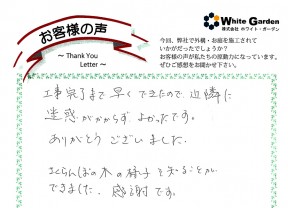 お客様の声
～ Thank You
Letter ～
White Garden
株式会社 ホワイト・ガーデン
今回、弊社で外構・お庭を施工されて
いかがだったでしょうか？
お客様の声が私たちの原動力になっています。
ぜひご感想をお聞かせ下さい。
工事完了まで早くできたので、近隣に
迷惑がかからず よかったです。
ありがとうございました。
さくらんぼの木の様子を知ることが
できました。感謝です。